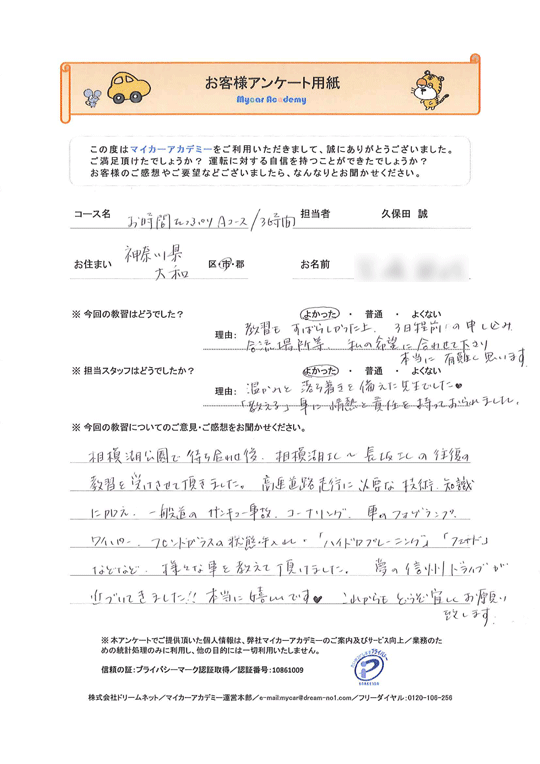 お客様アンケート用紙
Mycar Academy
この度はマイカーアカデミーをご利用いただきまして、誠にありがとうございました。
ご満足頂けたでしょうか? 運転に対する自信を持つことができたでしょうか?
お客様のご感想やご要望などございましたら、なんなりとお聞かせください。
コース名 お時間たっぷりAコース/3時間 担当者 久保田 誠
お住まい 神奈川県 大和 区・市・郡 お名前
※ 今回の教習はどうでした? よかった ・ 普通 ・ よくない
理由: 教習も すばらしかった上、3日程前の申し込み
合流場所等、私の希望に合わせて下さり
本当に有難く思います。
※ 担当スタッフはどうでしたか? よかった ・ 普通 ・ よくない
理由: 温かみと落ち着きを備えた先生でした♥
「教える」事に情熱と責任を持っておられました。
※ 今回の教習についてのご意見・ご感想をお聞かせください。
相模湖公園で待ち合わせ後、相模湖IC〜長坂ICの往復の
教習を受けさせて頂きました。高速道路走行に必要な技術、知識
に加え、一般道のサンキュー事故、コーナリング、車のフォグランプ、
ワイパー、フロントガラスの状態・手入れ・「ハイドロプレーニング」「フェード」
などなど、様々な事を教えて頂けました。夢の信州ドライブが
近づいてきました!! 本当に嬉しいです♥ これからもどうぞ宜しくお願い
致します。
※ 本アンケートでご提供頂いた個人情報は、弊社マイカーアカデミーのご案内及びサービス向上/業務のた
めの統計処理のみに利用し、他の目的には一切利用いたしません。
信頼の証:プライバシーマーク認証取得/認証番号:10861009
株式会社ドリームネット/マイカーアカデミー運営本部/e-mail:mycar@dream-no1.com/フリーダイヤル:0120-106-256